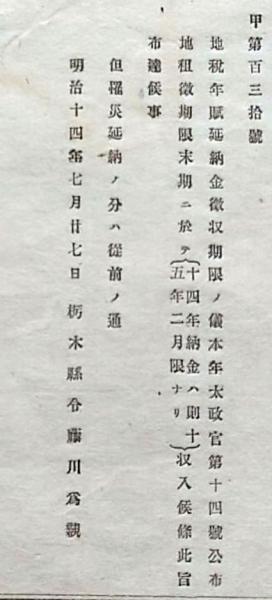 甲第百三拾號
地稅年賦延納金徵収期限ノ儀本年太政官第十四號公布
地租徵期限末期ニ於テ{十四年納金ハ則十五年二月限ナリ}収入候條此旨
布達候事
但罹災延納ノ分ハ從前ノ通
明治十四年七月廿七日 栃木縣令藤川爲親